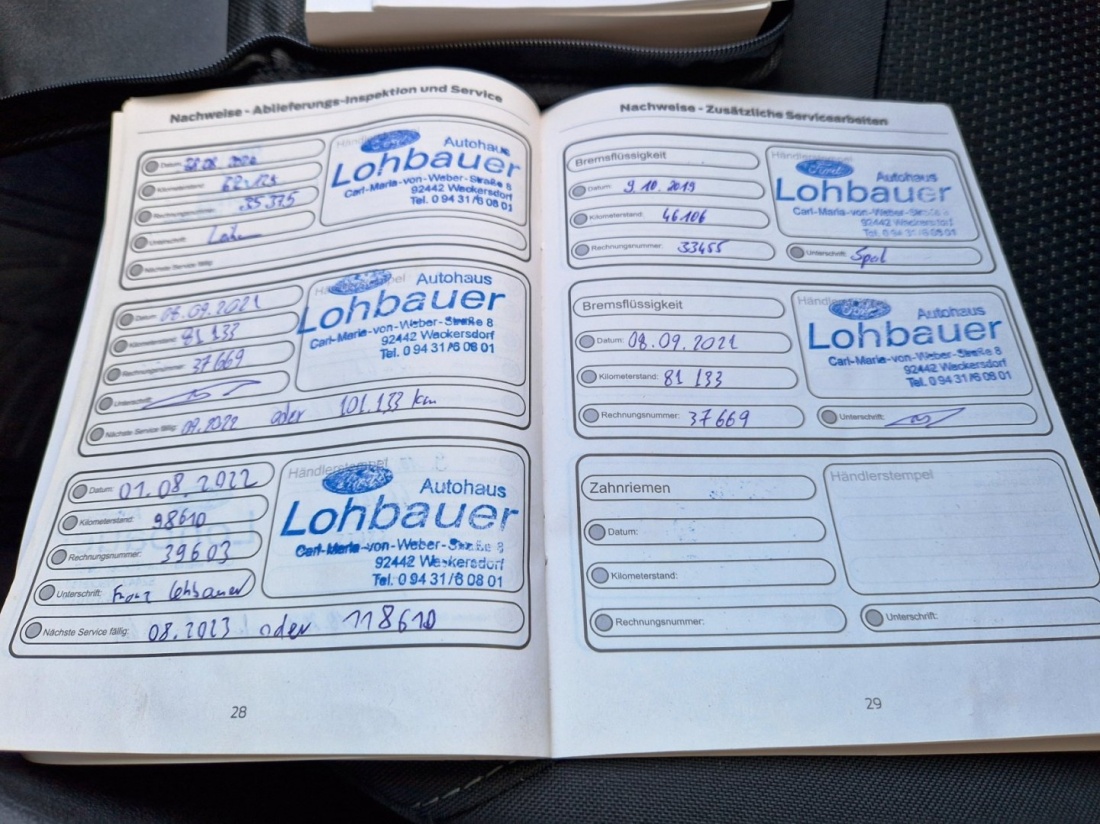 Nachweise - Ablieferungs-Inspektion und Service
Datum:
Kilometerstand:
35.375
Unterschrift:
Nächste Service fällig:
Händlerstempel
Ford
Autohaus
Lohbauer
Carl-Maria-von-Weber-Straße 8
92442 Wackersdorf
Tel. 0 94 31/6 08 01
Datum: 08.09.2021
Kilometerstand: 81 133
Rechnungsnummer: 37669
Unterschrift:
Nächste Service fällig: 09.2022 oder 101.133 km
Händlerstempel
Ford
Autohaus
Lohbauer
Carl-Maria-von-Weber-Straße 8
92442 Wackersdorf
Tel. 0 94 31/6 08 01
Datum: 01.08.2022
Kilometerstand: 98610
Rechnungsnummer: 39603
Unterschrift: Franz Lohbauer
Nächste Service fällig: 08.2023 oder 118610
Händlerstempel
Ford
Autohaus
Lohbauer
Carl-Maria-von-Weber-Straße 8
92442 Wackersdorf
Tel. 0 94 31/6 08 01
28
Nachweise - Zusätzliche Servicearbeiten
Bremsflüssigkeit
Datum: 9.10.2019
Kilometerstand: 46106
Rechnungsnummer: 33455
Händlerstempel
Ford
Autohaus
Lohbauer
Carl-Maria-von-Weber-Straße 8
92442 Wackersdorf
Tel. 0 94 31/6 08 01
Unterschrift:
Bremsflüssigkeit
Datum: 08.09.2021
Kilometerstand: 81 133
Rechnungsnummer: 37669
Händlerstempel
Ford
Autohaus
Lohbauer
Carl-Maria-von-Weber-Straße 8
92442 Wackersdorf
Tel. 0 94 31/6 08 01
Unterschrift:
Zahnriemen
Datum:
Kilometerstand:
Rechnungsnummer:
Händlerstempel
Unterschrift:
29